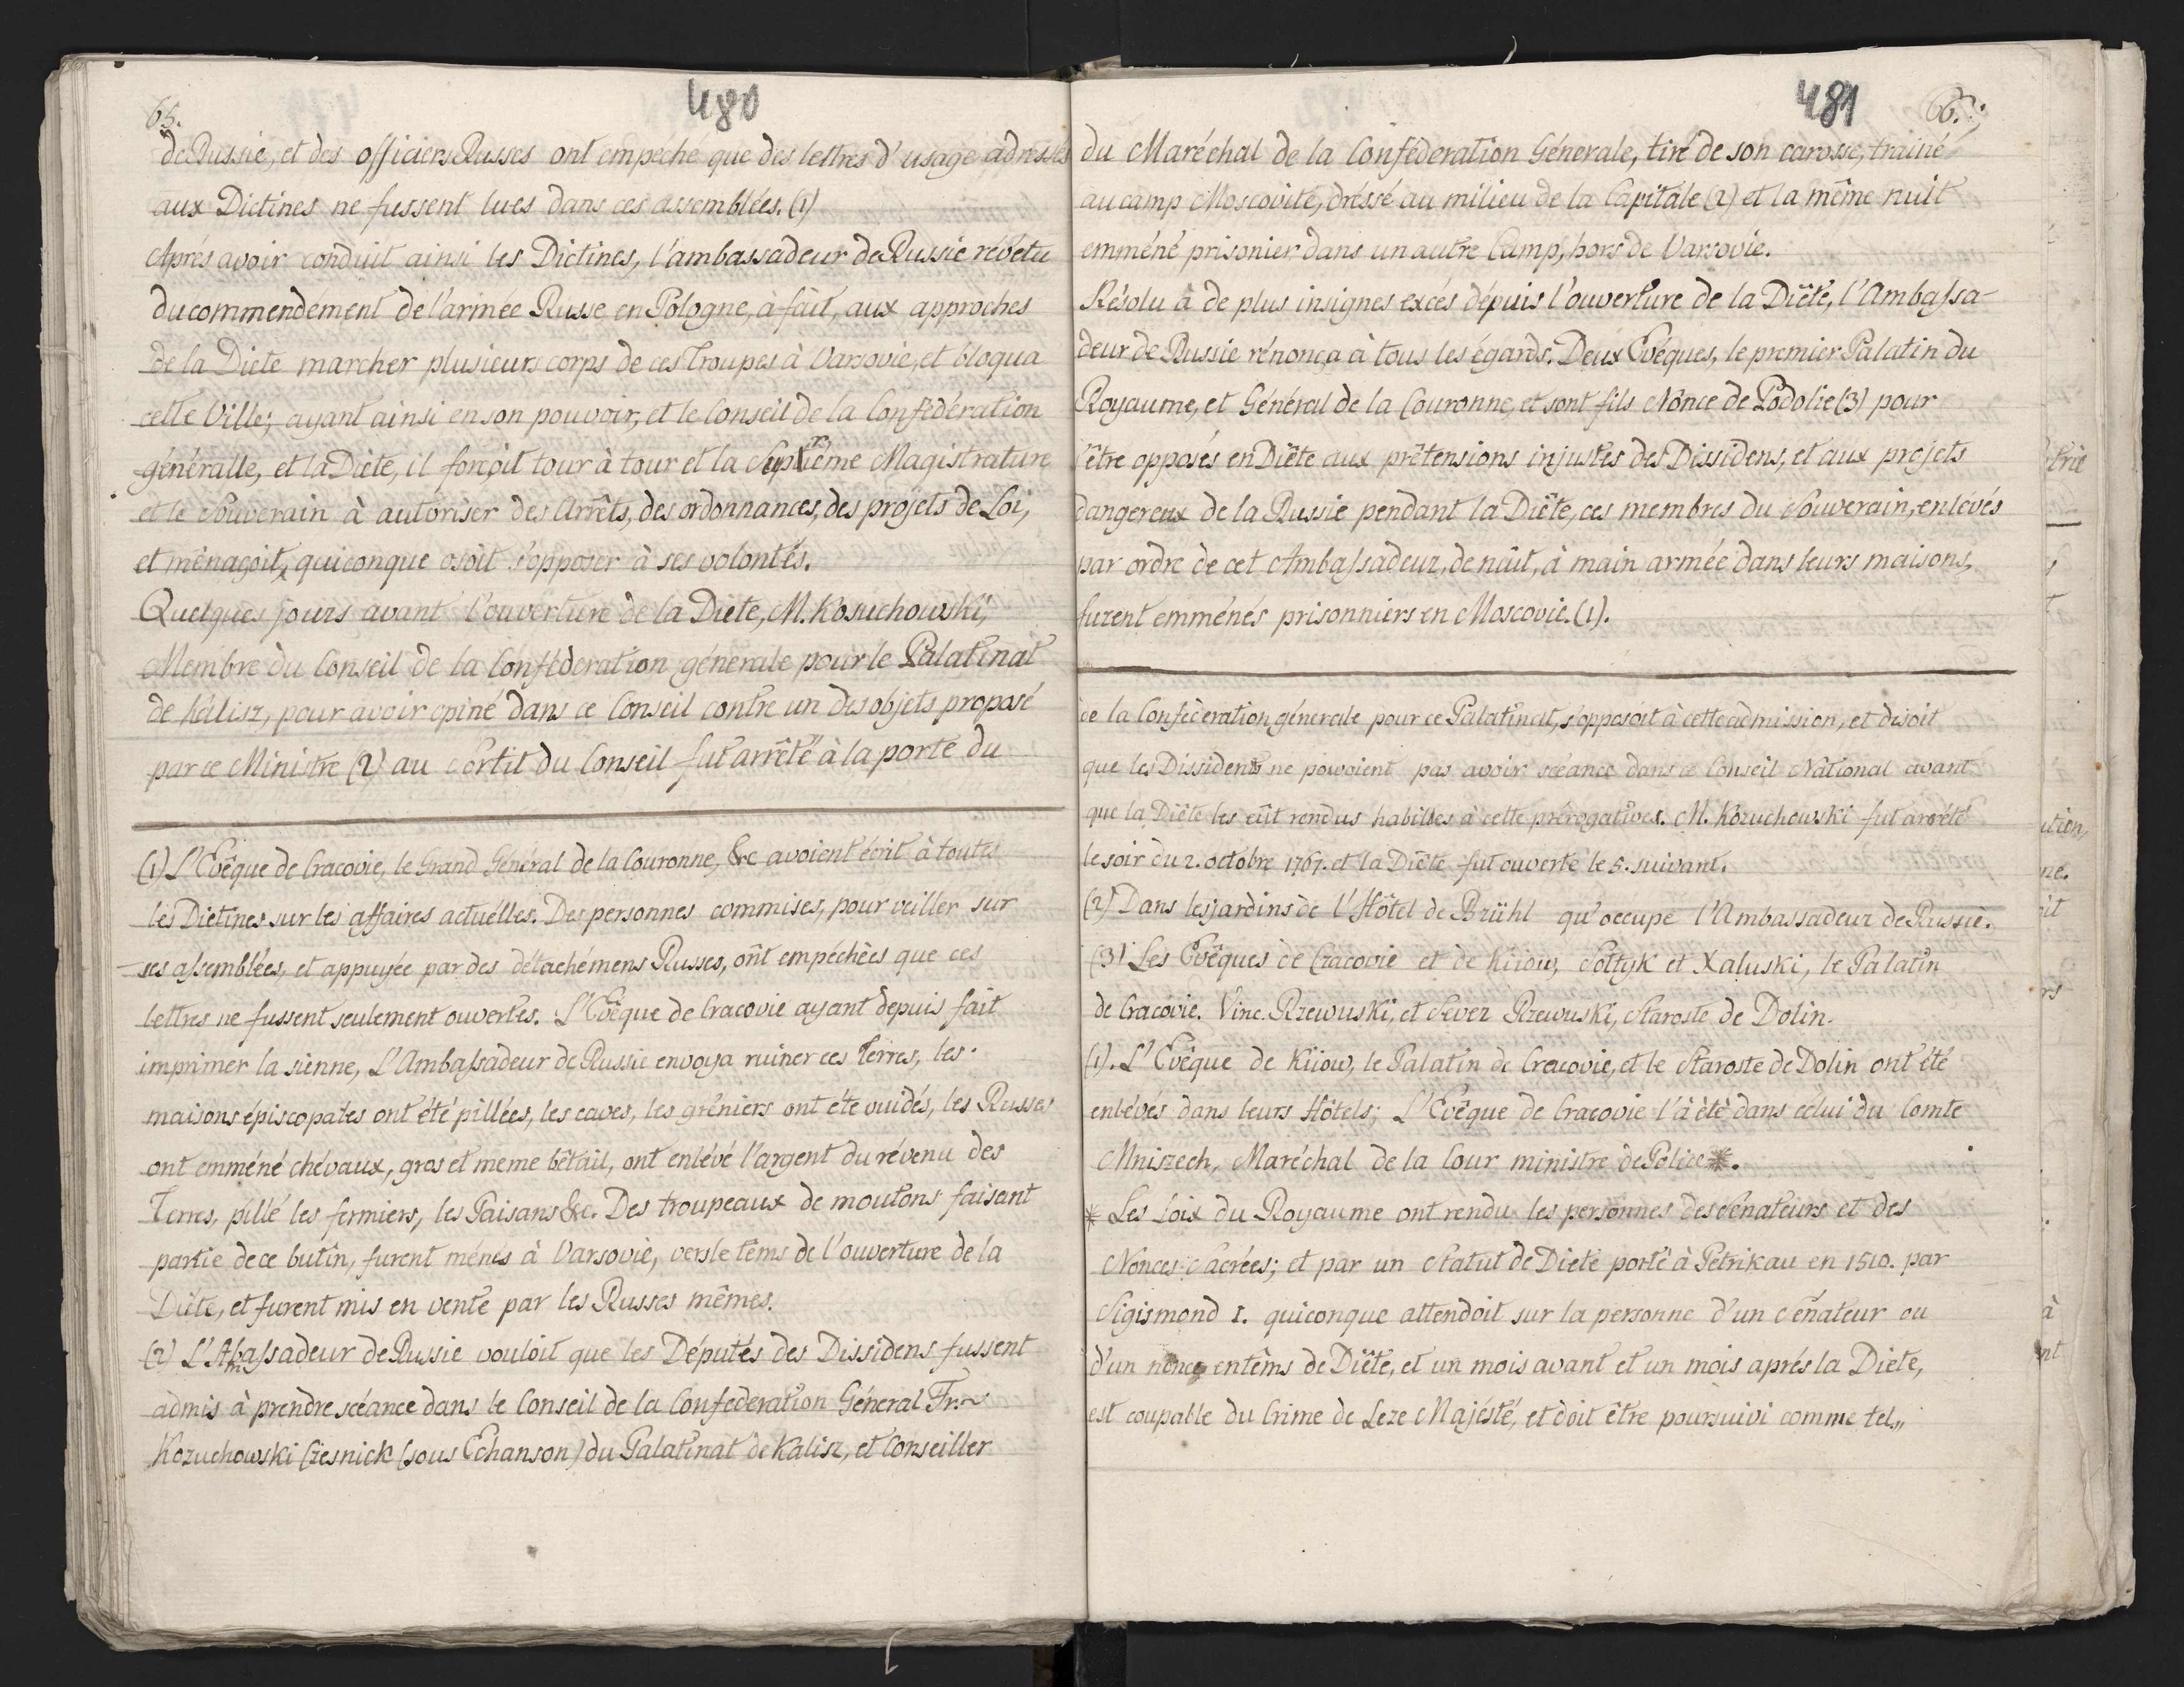 65.
480
de Russie, et des officiers Russes ont empeché que des lettres d'usage adressés
aux Dictines ne fussent lues dans ces assemblées. (1)
Aprés avoir conduit ainsi les Dictines, l'ambassadeur de Russie révétu
du commendément de l'armée Russe en Pologne, à fait, aux approches
de la Diete marcher plusieurs corps de ces Troupes à Varsovie, et bloqua
cette Ville; ayant ainsi en son pouvoir, et le Conseil de la Confédération
généralle, et la Diéte, il forçoit tour à tour et la Supréme Magistrature
et le Souverain à autoriser des Arrêts, des ordonnances, des projets de Loi,
et ménaçoit, quiconque osoit s'opposer à ses volontés.
Quelques jours avant l'ouverture de la Diete, M. Kosuchowski,
Membre du Conseil de la Conféderation génerale pour le Palatinat
de Kalisz, pour avoir opiné dans ce Conseil contre un des objets proposé
par ce Ministre (2) au sortit du Conseil fut arrêté à la porte du
(1) L'Evêque de Cracovie, le Grand Général de la Couronne, &c avoient écrit à toutes
les Diétines sur les affaires actuélles. Des personnes commises, pour veiller sur
ses assemblées, et appuyée par des détachémens Russes, ont empéchées que ces
lettres ne fussent seulement ouvertes. L'Evêque de Cracovie ayant depuis fait
imprimer la sienne, L'Ambassadeur de Russie envoya ruiner ces Terres, les
maisons épiscopates ont été pillées, les caves, les gréniers ont éte vuidés, les Russes
ont emméné chévaux, gros et meme bêtail, ont enlévé l'argent du révenu des
Terres, pillé les fermiers, les Paisans &c. Des troupeaux de moutons faisant
partie de ce butin, furent ménés à Varsovie, vers le têms de l'ouverture de la
Diéte, et furent mis en vente par les Russes mêmes.
(2) L'Ambassadeur de Russie vouloit que les Députés des Dissidens fussent
admis à prendre scéance dans le Conseil de la Confederation Géneral Fr.
Kozuchowski Czesnick (sous Echanson) du Palatinat de Kalisz, et Conseiller
481
66.
du Maréchal de la Conféderation Génerale, tiré de son carosse, trainé
au camp Moscovite, dréssé au milieu de la Capitale (2) et la même nuit
emméné prisonier dans un autre Camp, hors de Varsovie.
Résolu à de plus insignes excés dépuis l'ouverture de la Diête, l'Ambassa-
deur de Russie rénonça à tous les égards. Deux Evéques, le premier Palatin du
Royaume, et Général de la Couronne, et sont fils Nonce de Podolie (3) pour
s'être opposés en Diête aux prétensions injustes des Dissidens, et aux projets
dangereux de la Russie pendant la Diête, ces membres du Souverain, enlévés
par ordre de cet Ambassadeur, de nüit, à main armée dans leurs maisons,
furent emménés prisonniers en Moscovie. (1).
de la Conféderation génerale pour ce Palatinat, s'opposoit à cette admission, et disoit
que les Dissidents ne pouvoient pas avoir scéance dans ce Conseil National avant
que la Diête les eût rendus habilles à cette prérogatives. M. Kozuchowski fut arrété
le soir du 2. octobre 1767. et la Diête fut ouverte le 5. suivant.
(2) Dans les jardins de l'Hôtel de Brühl qu'occupe l'Ambassadeur de Russie.
(3) Les Evêques de Cracovie et de Kiiow, Soltyk et Xaluski, le Palatin
de Cracovie. Vinc. Rzewuski, et Sever Rzewuski, Staroste de Dolin.
(1). L'Evêque de Kiiow, le Palatin de Cracovie, et le Staroste de Dolin ont été
enlévés dans leurs Hôtels; L'Evêque de Cracovie l'à été dans célui du Comte
Mniszech, Maréchal de la Cour ministre de Police *.
* Les Loix du Royaume ont rendu les personnes des Sénateurs et des
Nonces Sacrées; et par un Statut de Diete porté à Petrikau en 1510. par
Sigismond I. quiconque attendoit sur la personne d'un Sénateur ou
d'un nonce en têms de Diête, et un mois avant et un mois aprés la Diete,
est coupable du Crime de Leze Majésté, et doit être poursuivi comme tel„